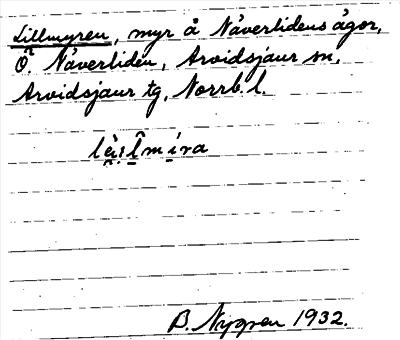 Lillmyren, myr å Nåverlidens ägor,
Ö. Nåverliden, Arvidsjaur sn,
Arvidsjaur tg, Norrb. l.
B. Nygren 1932.